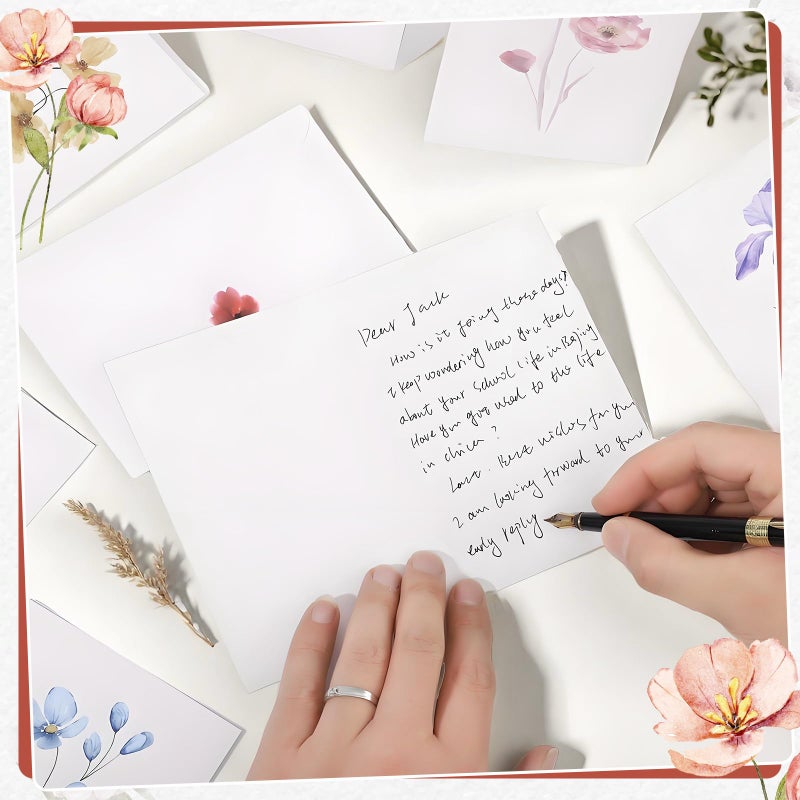 Dear Jack
How is it going these days?
I keep wondering how you feel
about your school life in Beijing
Have you got used to the life
in china ?
Last. Best wishes for you
I am looking forward to your
early reply